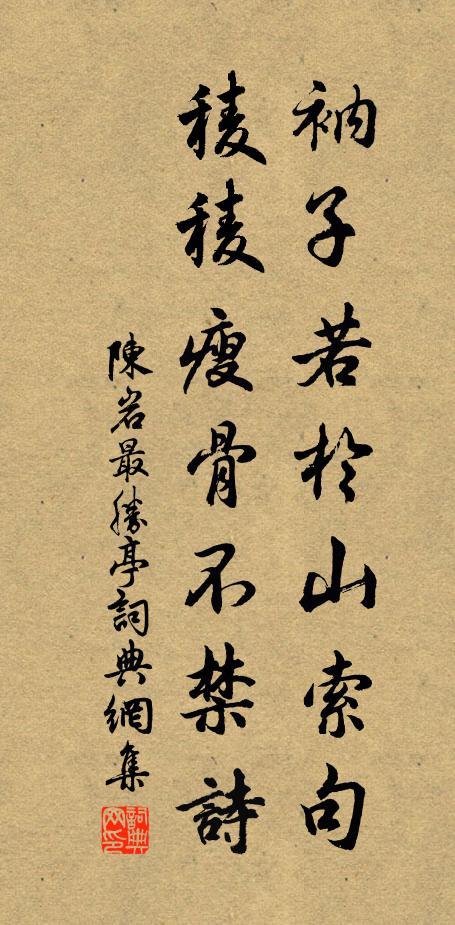 衲子若於山索句
稜稜瘦骨不禁詩
陳岩最勝亭詞典網集
詞典網印